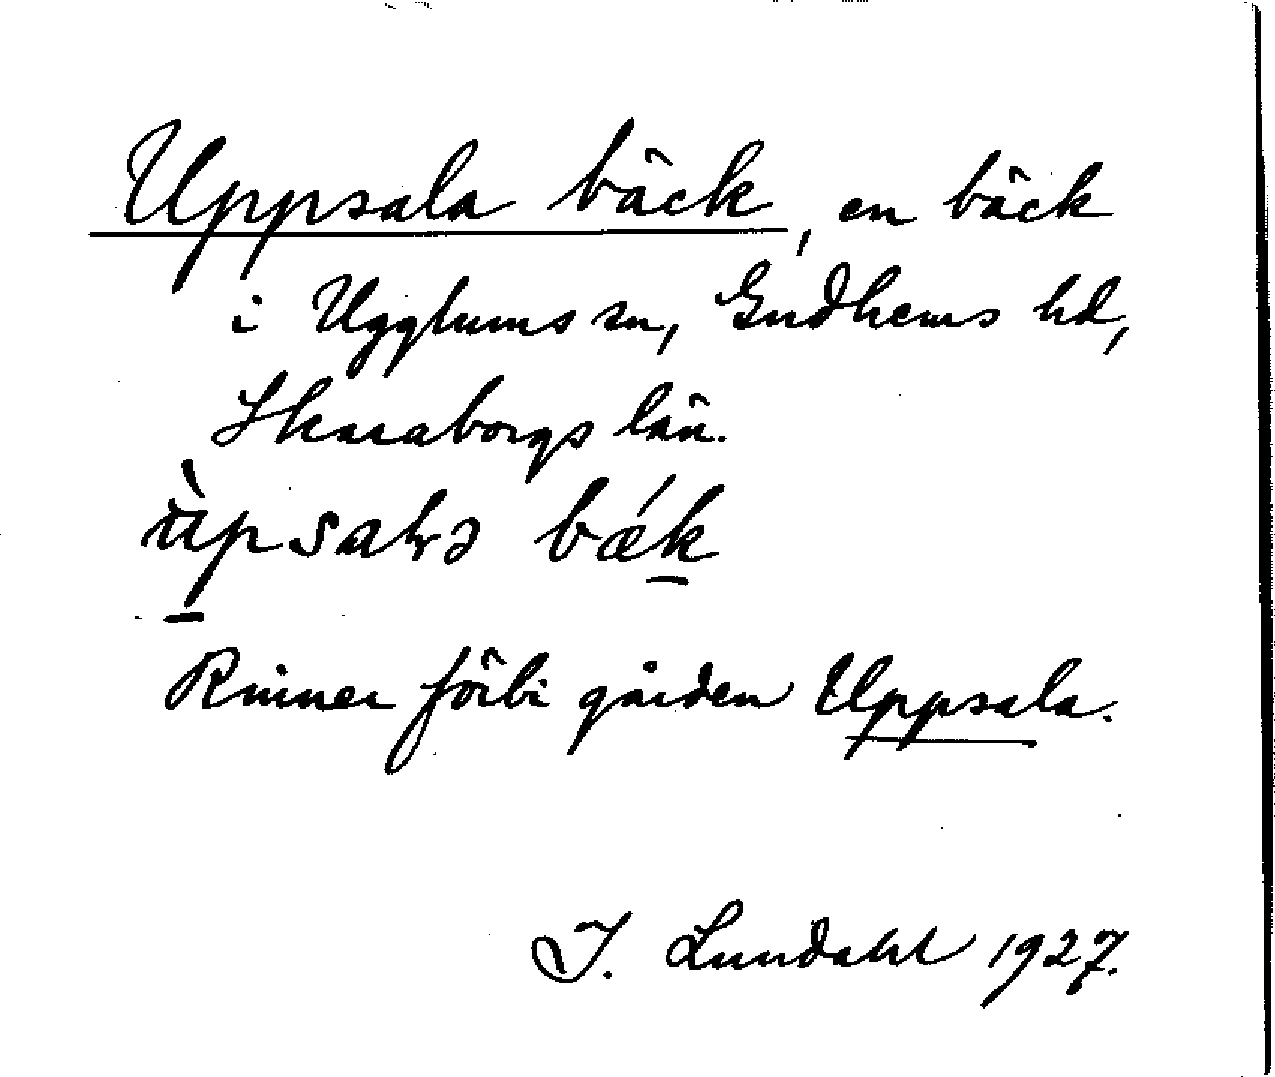 Uppsala bäck, en bäck
i Ugglums sn, Gudhems hd,
Skaraborgs län.
bǽk
Rinner förbi gården Uppsala.
I. Lundahl 1927.